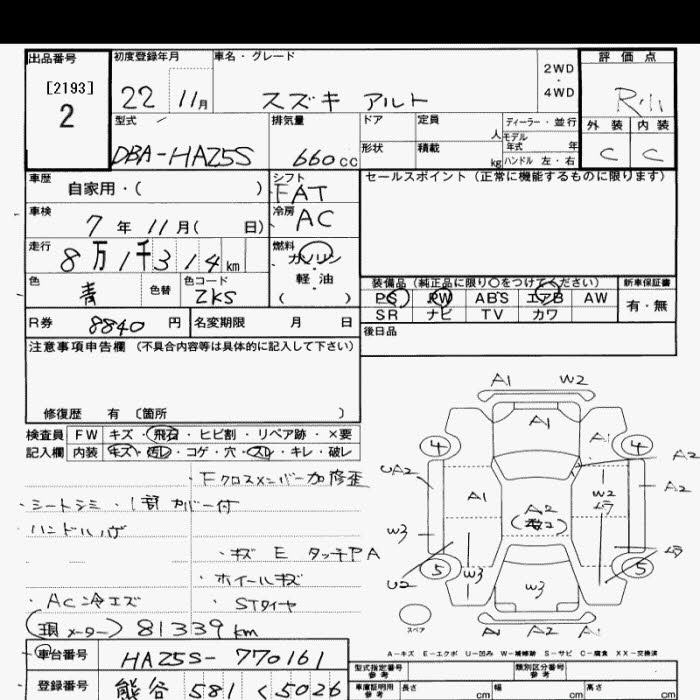 出品番号
[2193]
2
初度登録年月
22 11月
車名・グレード
スズキ アルト
2WD
・
4WD
評価点
外装 内装
C C
型式
DBA-HA25S
排気量
660cc
ドア
定員
人
形状
積載
kg
ディーラー・並行
モデル年式 年
ハンドル 左・右
車歴
自家用・( )
シフト
FAT
車検
7年11月( 日)
冷房
AC
走行
8万1千314km
燃料
ガソリン
・
軽油
( )
色
青
色替
色コード
ZKS
R券
8840円
名変期限 月 日
セールスポイント(正常に機能するものに限ります)
装備品(純正品に限り〇をつけてください)
新車保証書
PS PW ABS エアB AW
SR ナビ TV カワ
有・無
後日品
注意事項申告欄(不具合内容等は具体的に記入して下さい)
修復歴 有〔箇所 〕
検査員記入欄
FW キズ・飛石・ヒビ割・リペア跡・×要
内装 キズ・汚レ・コゲ・穴・スレ・キレ・破レ
・Fクロスメンバー加修歪
・シートシミ・1部カバー付
・ハンドル
・キズ E タッチPA
・ホイールキズ
・AC冷エズ
・STタイヤ
(現メーター) 81339km
車台番号
HA25S-770161
登録番号
熊谷 581 く 5026
A1 W2
A1
A1
4 4
UA2
A2
A2
A1
W2
A2
W3
5 5
U2
W3
W3
スペア
A1 A2 A1
A-キズ E-エクボ U-凹み W-補修跡 S-サビ C-腐食 XX-交換済
型式指定番号
参考
類別区分番号
参考
車庫証明用
参考
長さ cm
幅 cm
高さ cm